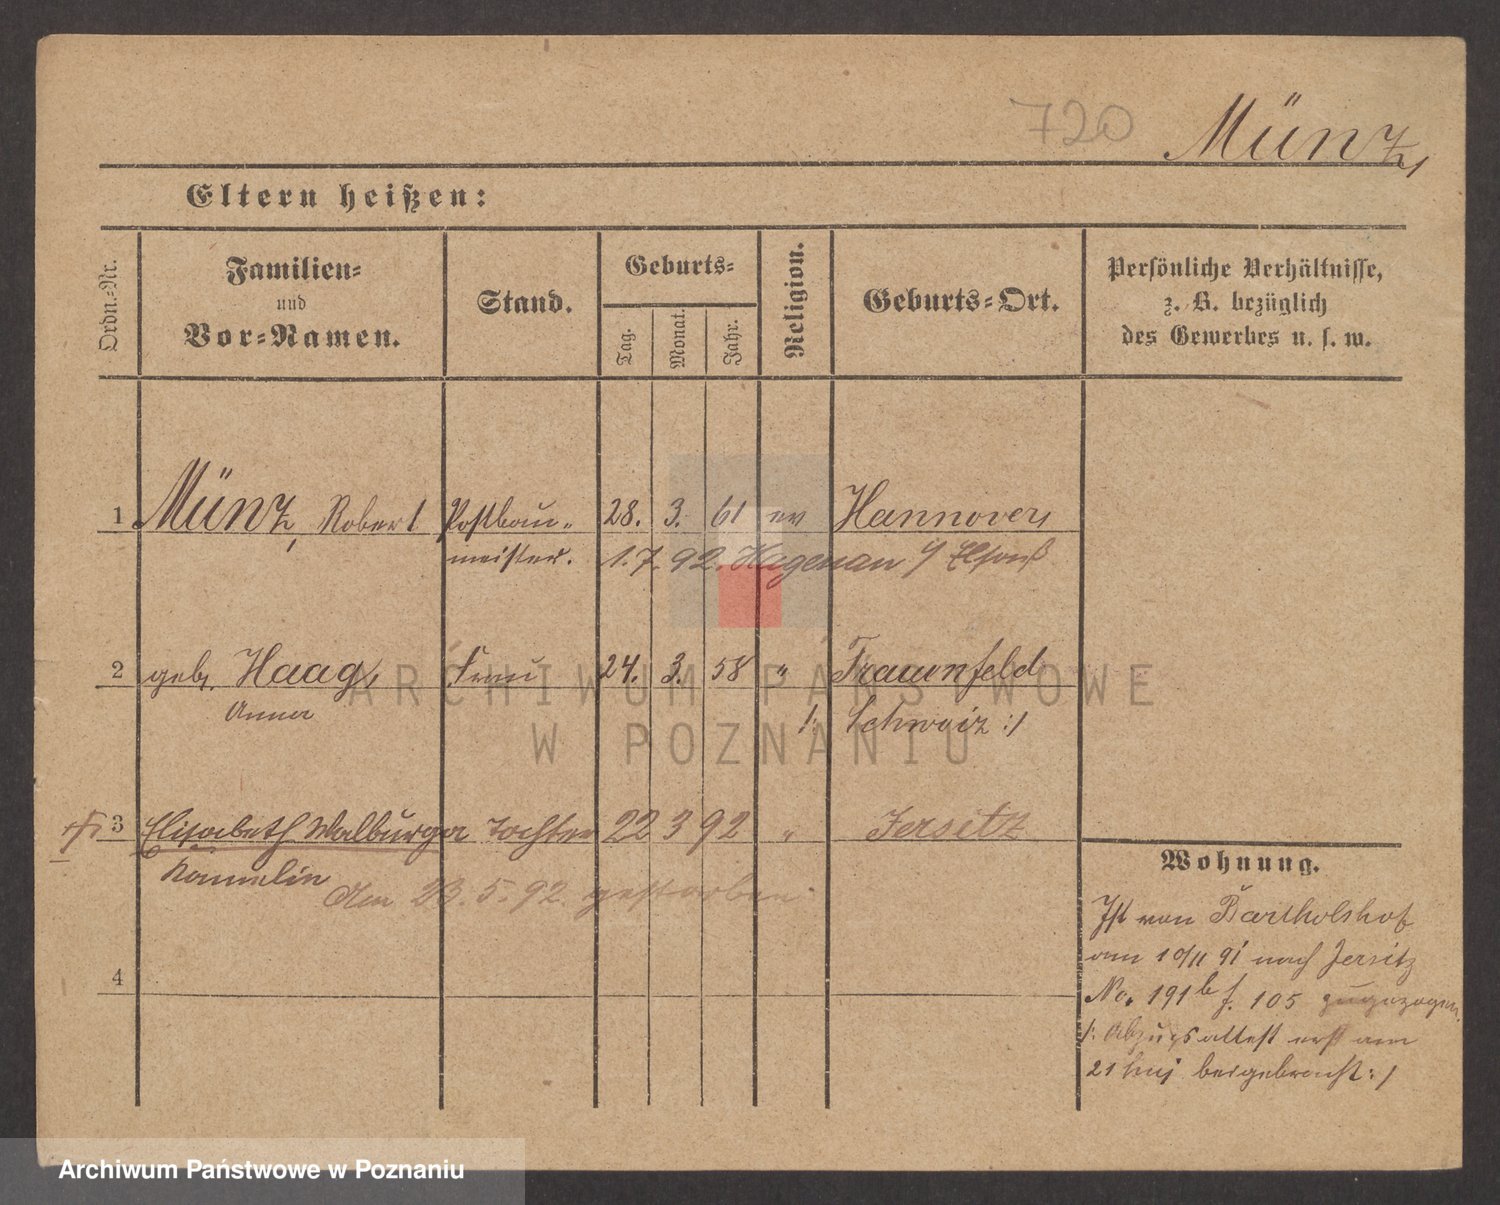 720 Münz,
Eltern heißen:
Ordn.-Nr.
Familien-
und
Vor-Namen.
Stand.
Geburts-
Tag.
Monat.
Jahr.
Religion.
Geburts-Ort.
Persönliche Verhältnisse,
z. B. bezüglich
des Gewerbes u. s. w.
1 Münz, Robert Postbau- 28. 3. 61 ev Hannover
meister. 1. 7. 92. Hagenau i/ Elsaß
2 geb. Haag, Frau 24. 3. 58 " Frauenfeld
Anna /: Schweiz :/
3 Elisabeth Walburga Tochter 22 3 92 " Jersitz
Am 23. 5. 92. gestorben.
4
Wohnung.
Ist von Bartholshof
am 10/11 91 nach Jersitz
No. 191b f. 105 zugezogen.
/: Abzugsattest erst am
21 huj beigebracht :/
ARCHIWUM PAŃSTWOWE
W POZNANIU
Archiwum Państwowe w Poznaniu